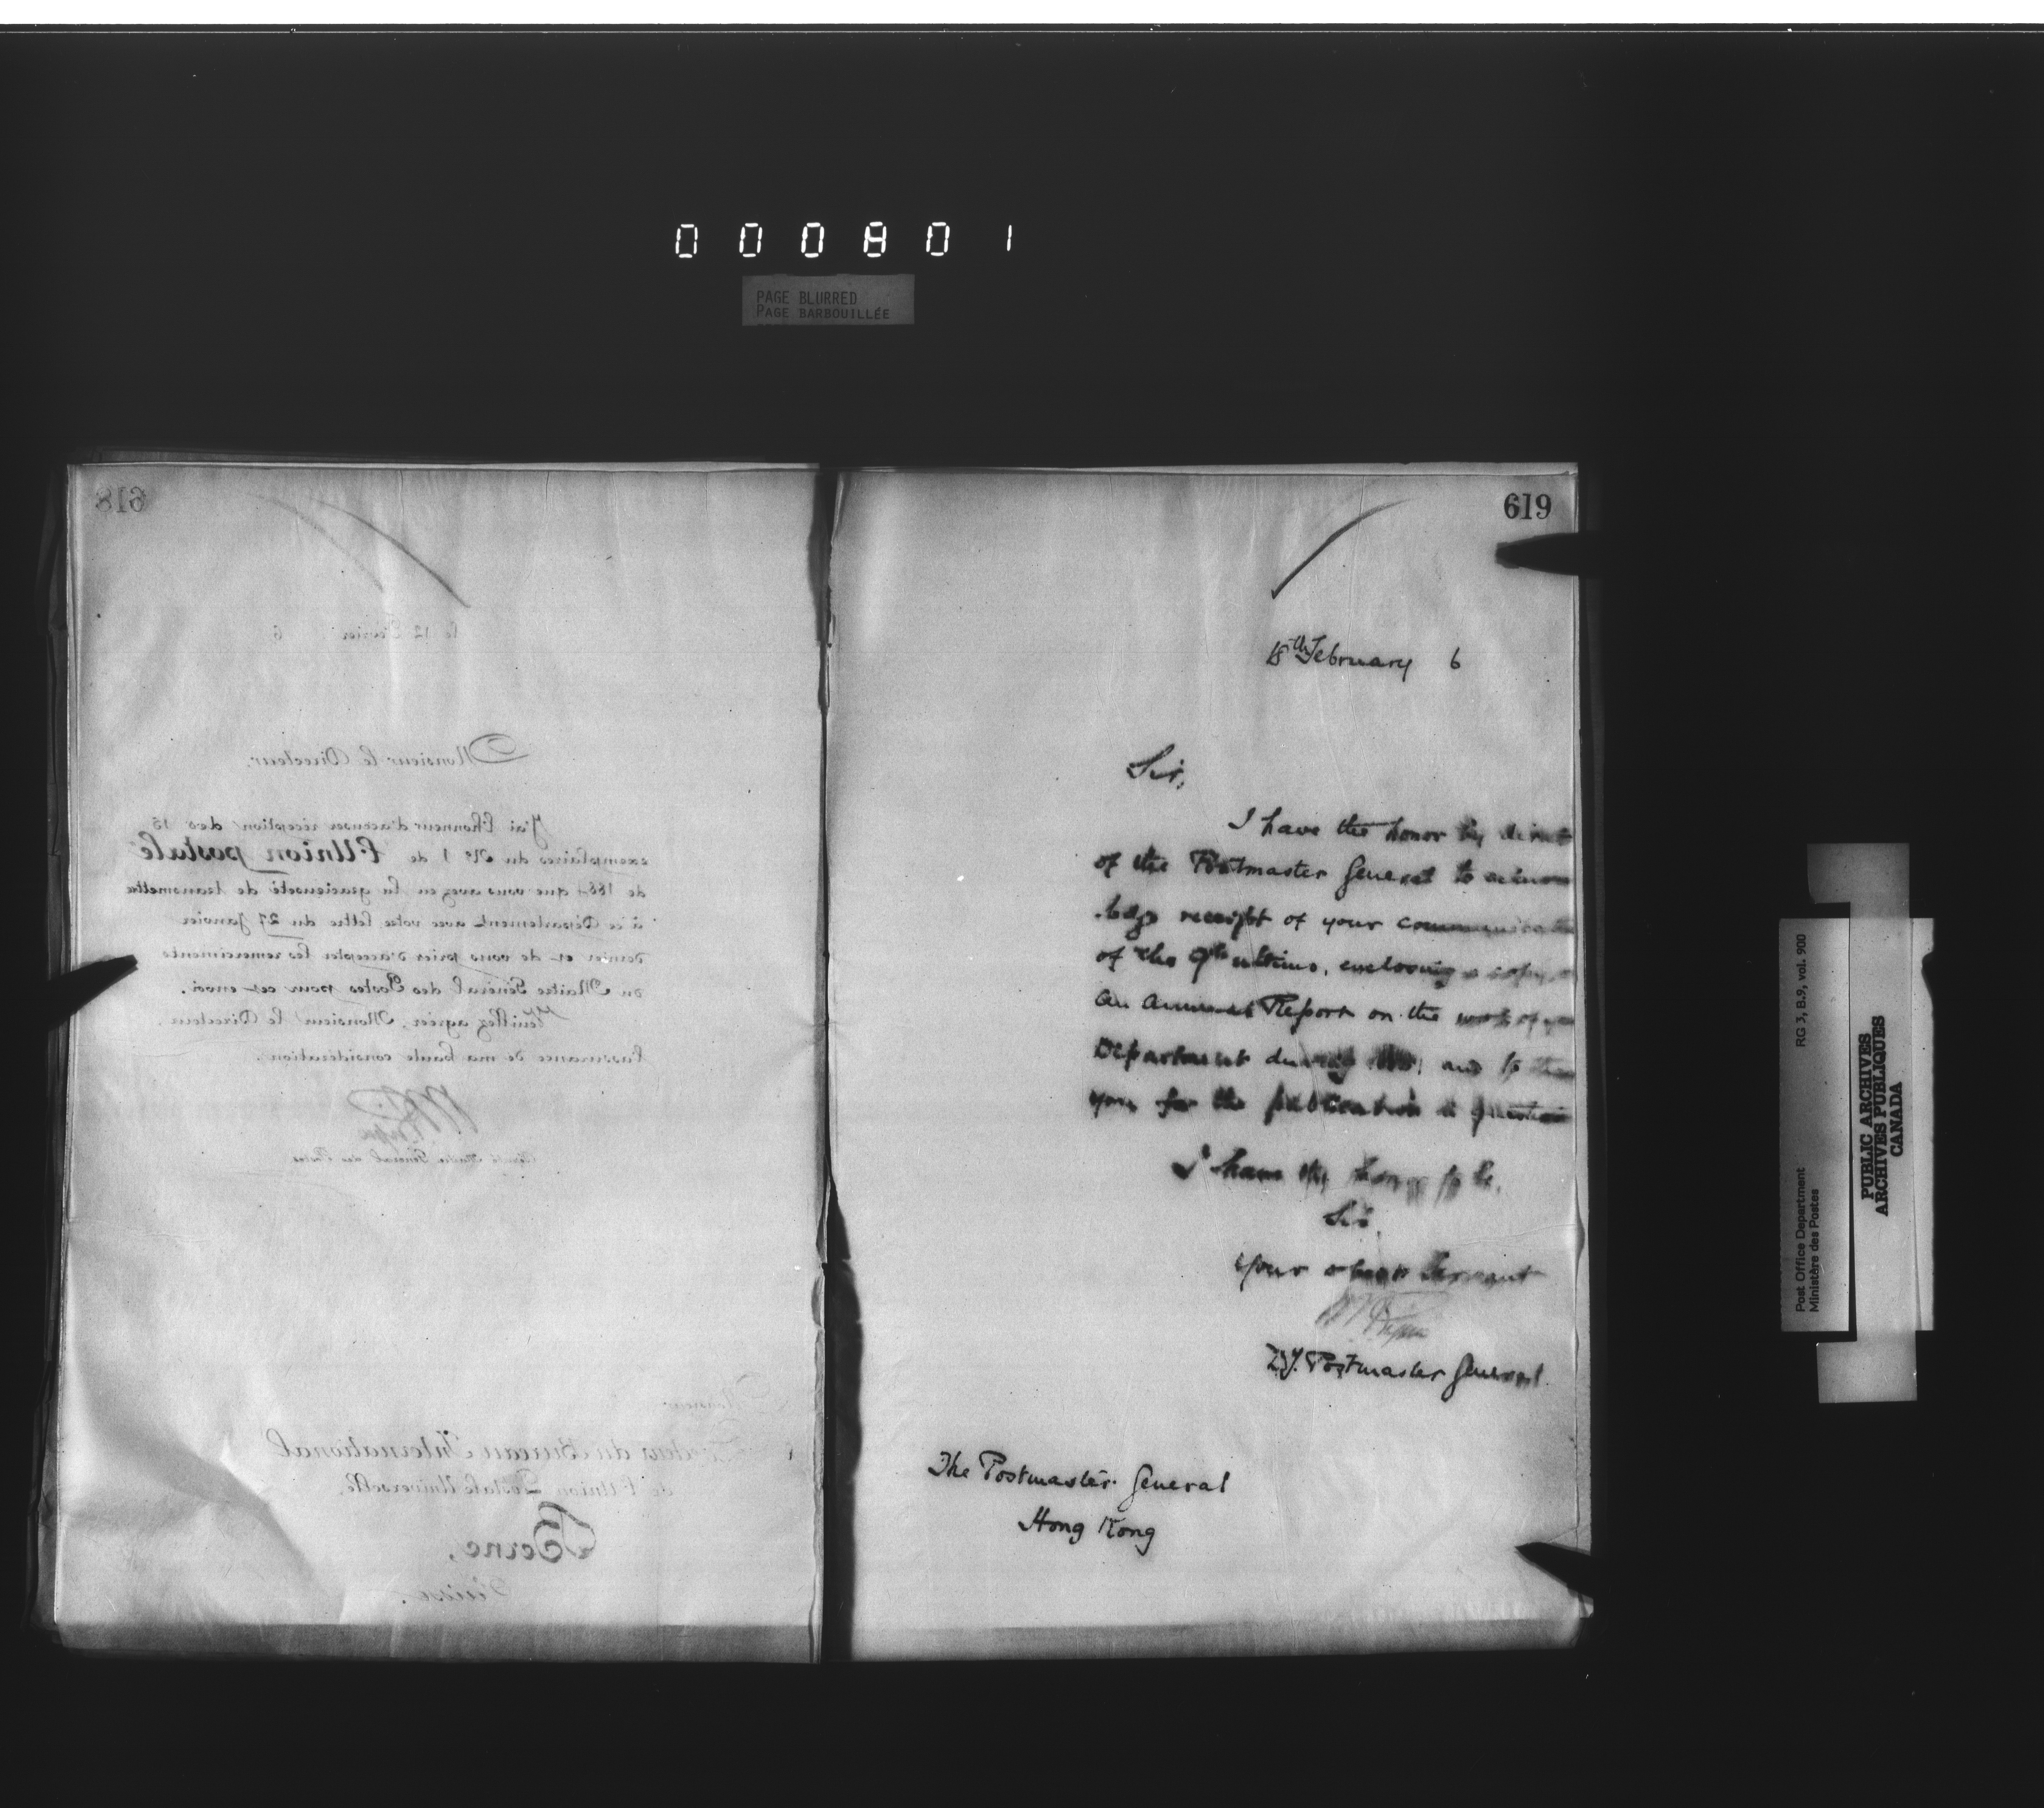 000801
PAGE BLURRED
PAGE BARBOUILLÉE
618
le 12 Février 6
Monsieur le Directeur.
J'ai l'honneur d'accuser réception des 15
exemplaires du No 1 de l'Union postale
de 1864 que vous avez eu la gracieuseté de transmettre
à ce Département avec votre lettre du 27 Janvier
dernier et de vous prier d'accepter les remerciments
du Maître Général des Postes pour cet envoi.
Veuillez agréer, Monsieur le Directeur,
l'assurance de ma haute considération.
Maître Général des Postes
Monsieur
du Bureau International
de l'Union Postale Universelle,
Berne,
Suisse.
619
18th February 6
Sir,
I have the honor by direct
of the Postmaster General to acknow
ledge receipt of your communicati
of the 9th ultimo, enclosing a copy
an annual Report on the work of
Department during and to than
you for the publication in question
I have the honor to be,
Sir,
Your obedt Servant
Dy. Postmaster General.
The Postmaster General
Hong Kong
RG 3, B.9, vol. 900
Post Office Department
Ministère des Postes
PUBLIC ARCHIVES
ARCHIVES PUBLIQUES
CANADA